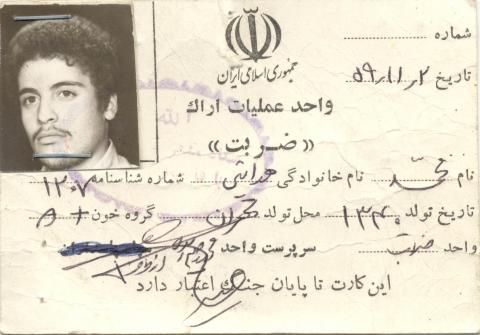 شماره
جمهوری اسلامی ایران
تاریخ ۵۹/۱۱/۲
واحد عملیات اراک
«ضربت»
نام محمّد نام خانوادگی شماره شناسنامه ۱۲۰۷
تاریخ تولد ۱۳۴۰ محل تولد تهران گروه خون A+
واحد ضربت سرپرست واحد
این کارت تا پایان جنگ اعتبار دارد